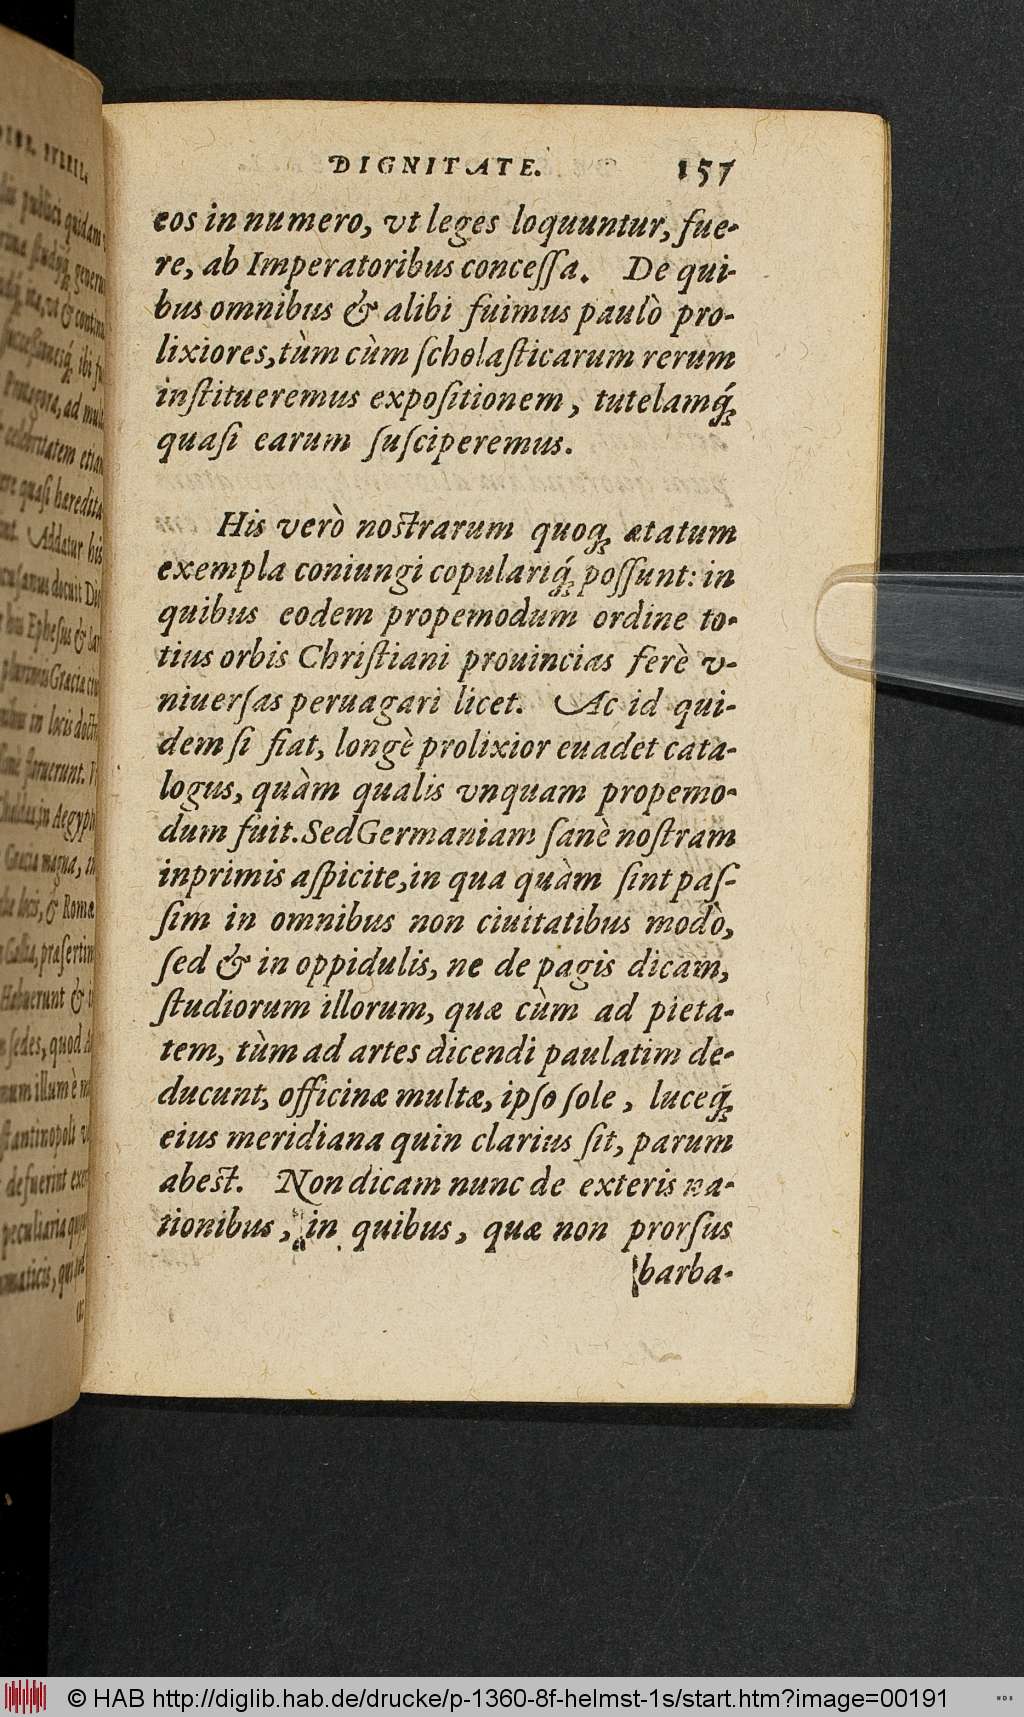 DIGNITATE. 157
eos in numero, vt leges loquuntur, fue-
re, ab Imperatoribus concessa. De qui-
bus omnibus & alibi fuimus paulò pro-
lixiores, tùm cùm scholasticarum rerum
institueremus expositionem, tutelamq́;
quasi earum susciperemus.
His verò nostrarum quoq; ætatum
exempla coniungi copulariq́; possunt: in
quibus eodem propemodum ordine to-
tius orbis Christiani prouincias ferè v-
niuersas peruagari licet. Ac id qui-
dem si fiat, longè prolixior euadet cata-
logus, quàm qualis vnquam propemo-
dum fuit. Sed Germaniam sanè nostram
inprimis aspicite, in qua quàm sint pas-
sim in omnibus non ciuitatibus modò,
sed & in oppidulis, ne de pagis dicam,
studiorum illorum, quæ cùm ad pieta-
tem, tùm ad artes dicendi paulatim de-
ducunt, officinæ multæ, ipso sole, luceq́;
eius meridiana quin clarius sit, parum
abest. Non dicam nunc de exteris na-
tionibus, in quibus, quæ non prorsus
barba-
publici quidam
& contin
ibi
ad mult
etiam
quasi hæredita
Addatur his
docuit
Ephesus & Sar
in locis doct
floruerunt.
in Aegypt
magna, in
locis, & Romæ
præsertim
Habuerunt &
sedes, quod
illum è
defuerint exe
peculiaria
© HAB http://diglib.hab.de/drucke/p-1360-8f-helmst-1s/start.htm?image=00191